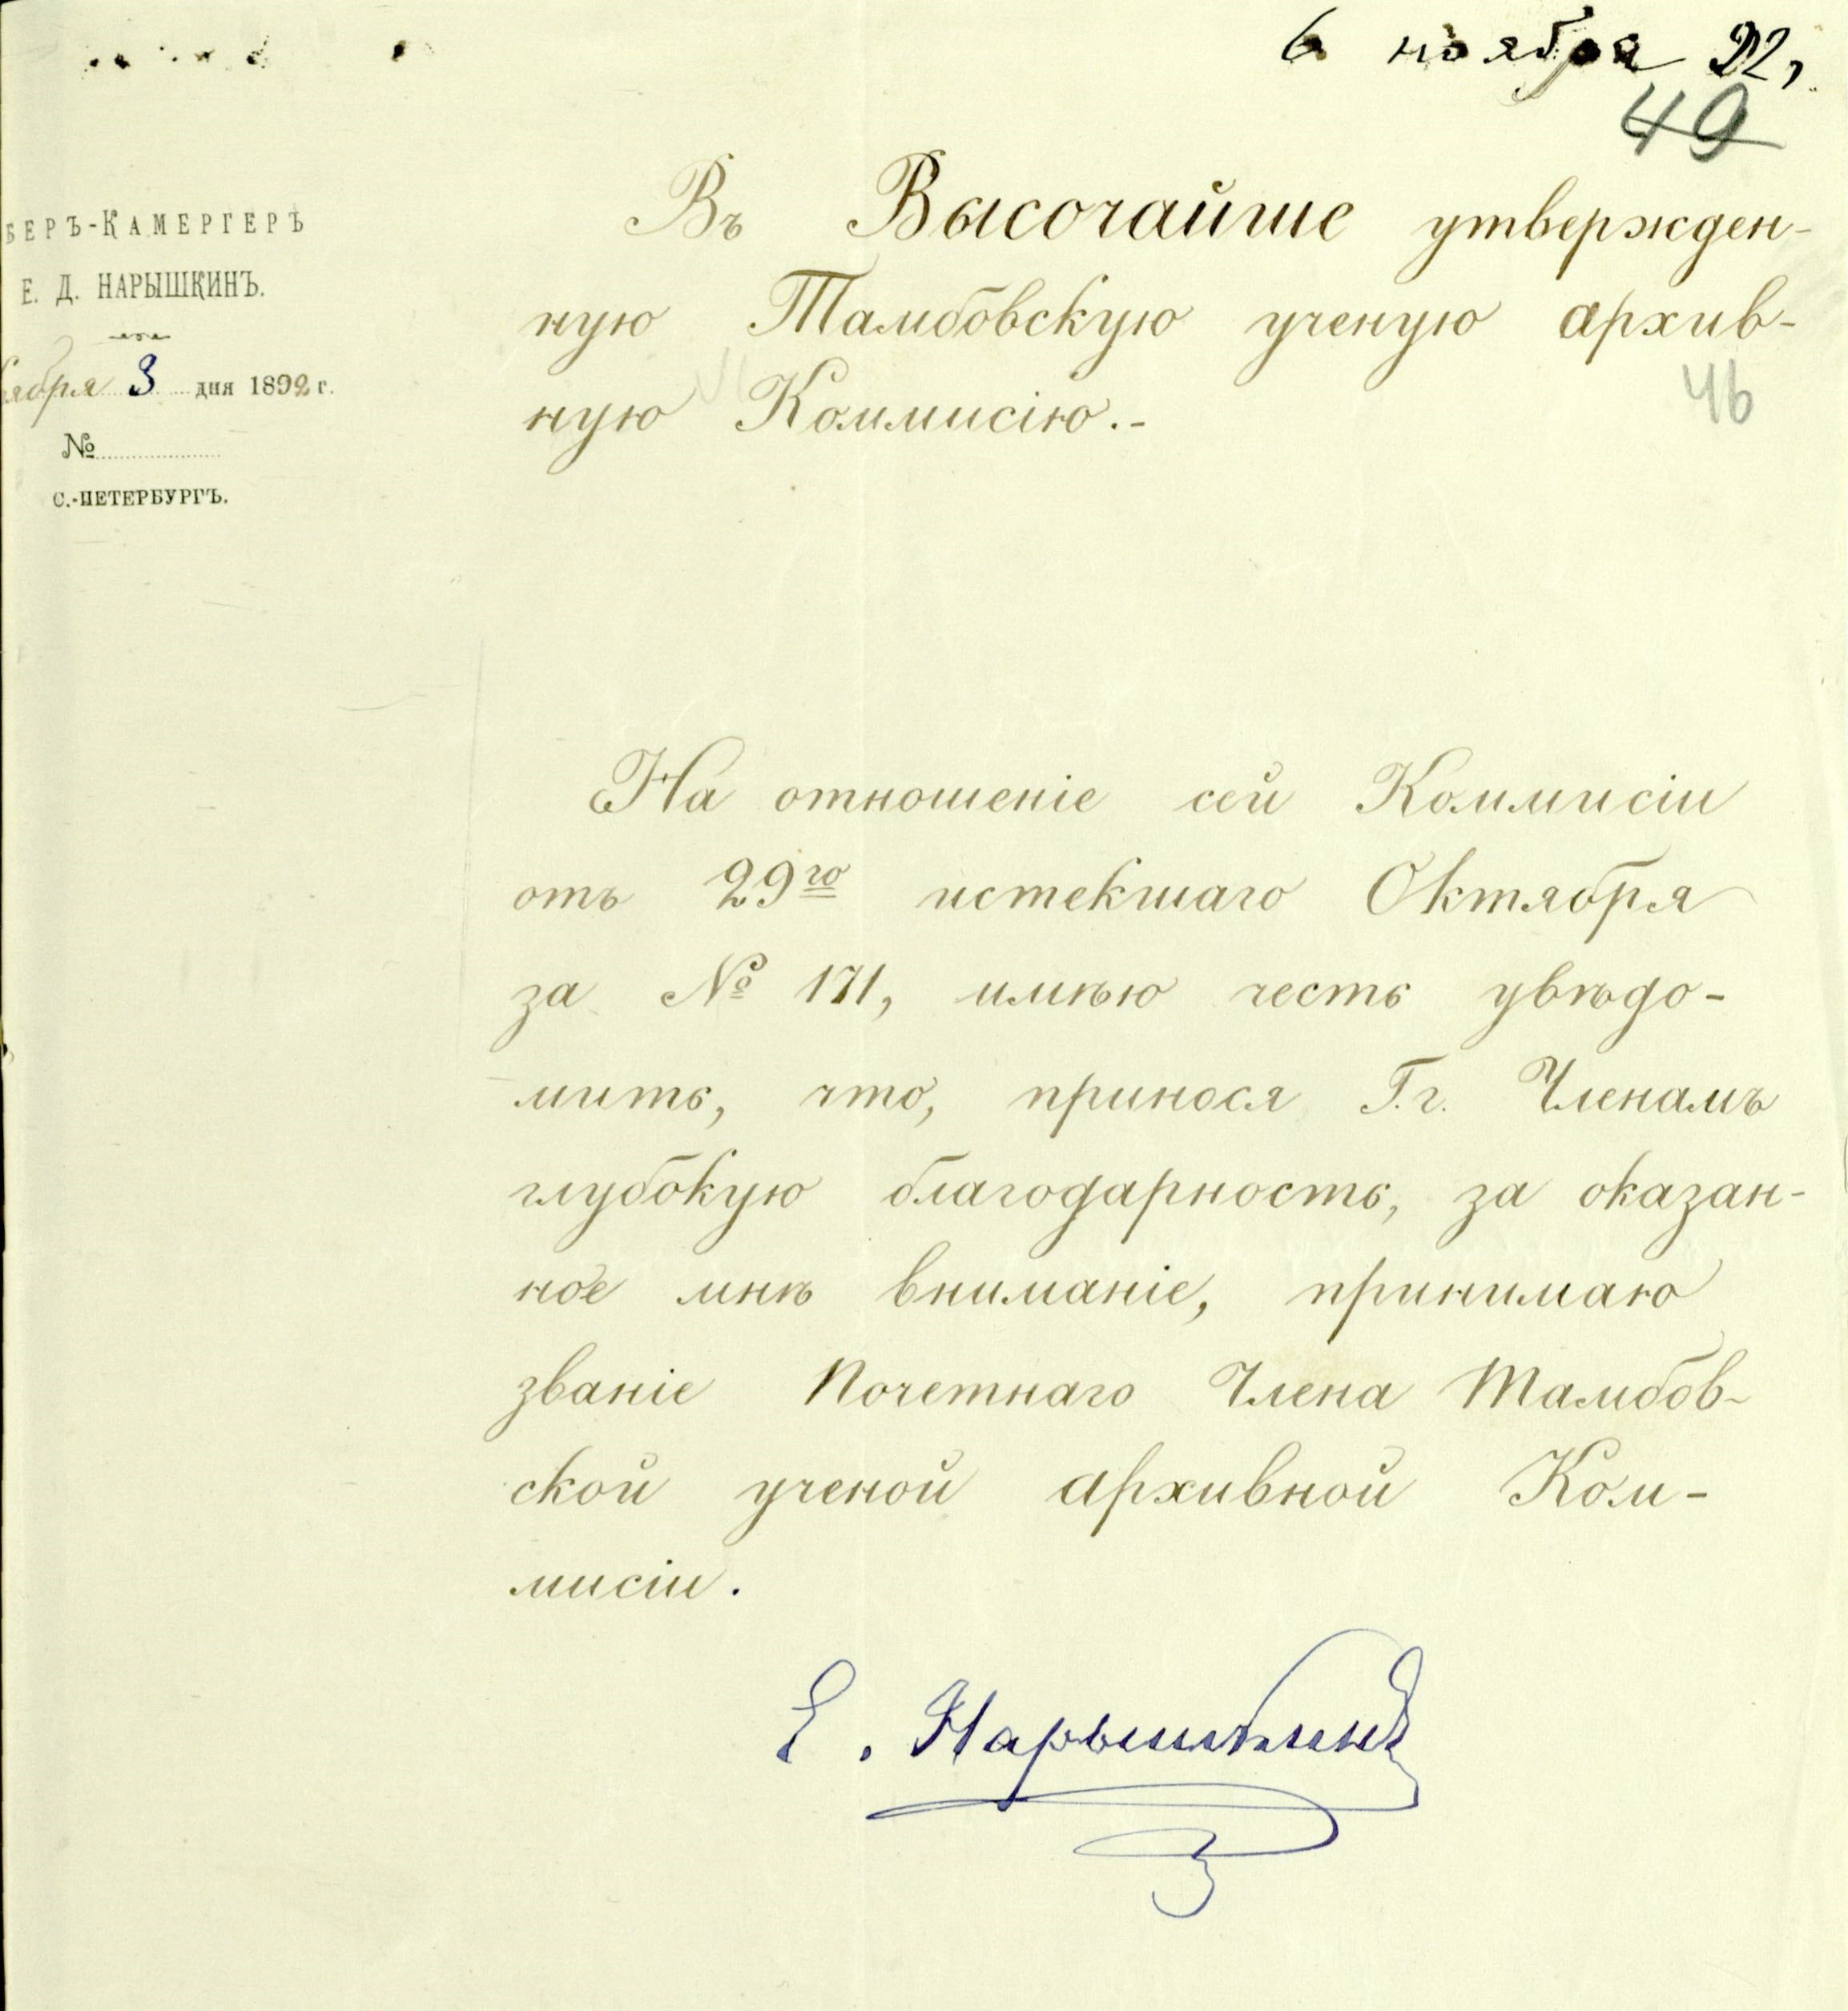 6 ноября 92,
49
БЕРЪ-КАМЕРГЕРЪ
Е. Д. НАРЫШКИНЪ.
ября 3 дня 1892 г.
№
С.-ПЕТЕРБУРГЪ.
Въ Высочайше утвержден-
ную Тамбовскую ученую архив-
ную Коммисію.-
46
На отношеніе сей Коммисіи
отъ 29го истекшаго Октября
за № 171, имѣю честь увѣдо-
мить, что, принося Г.г. Членамъ
глубокую благодарность, за оказан-
ное мнѣ вниманіе, принимаю
званіе Почетнаго Члена Тамбов-
ской ученой архивной Ком-
мисіи.
Е. Нарышкинъ